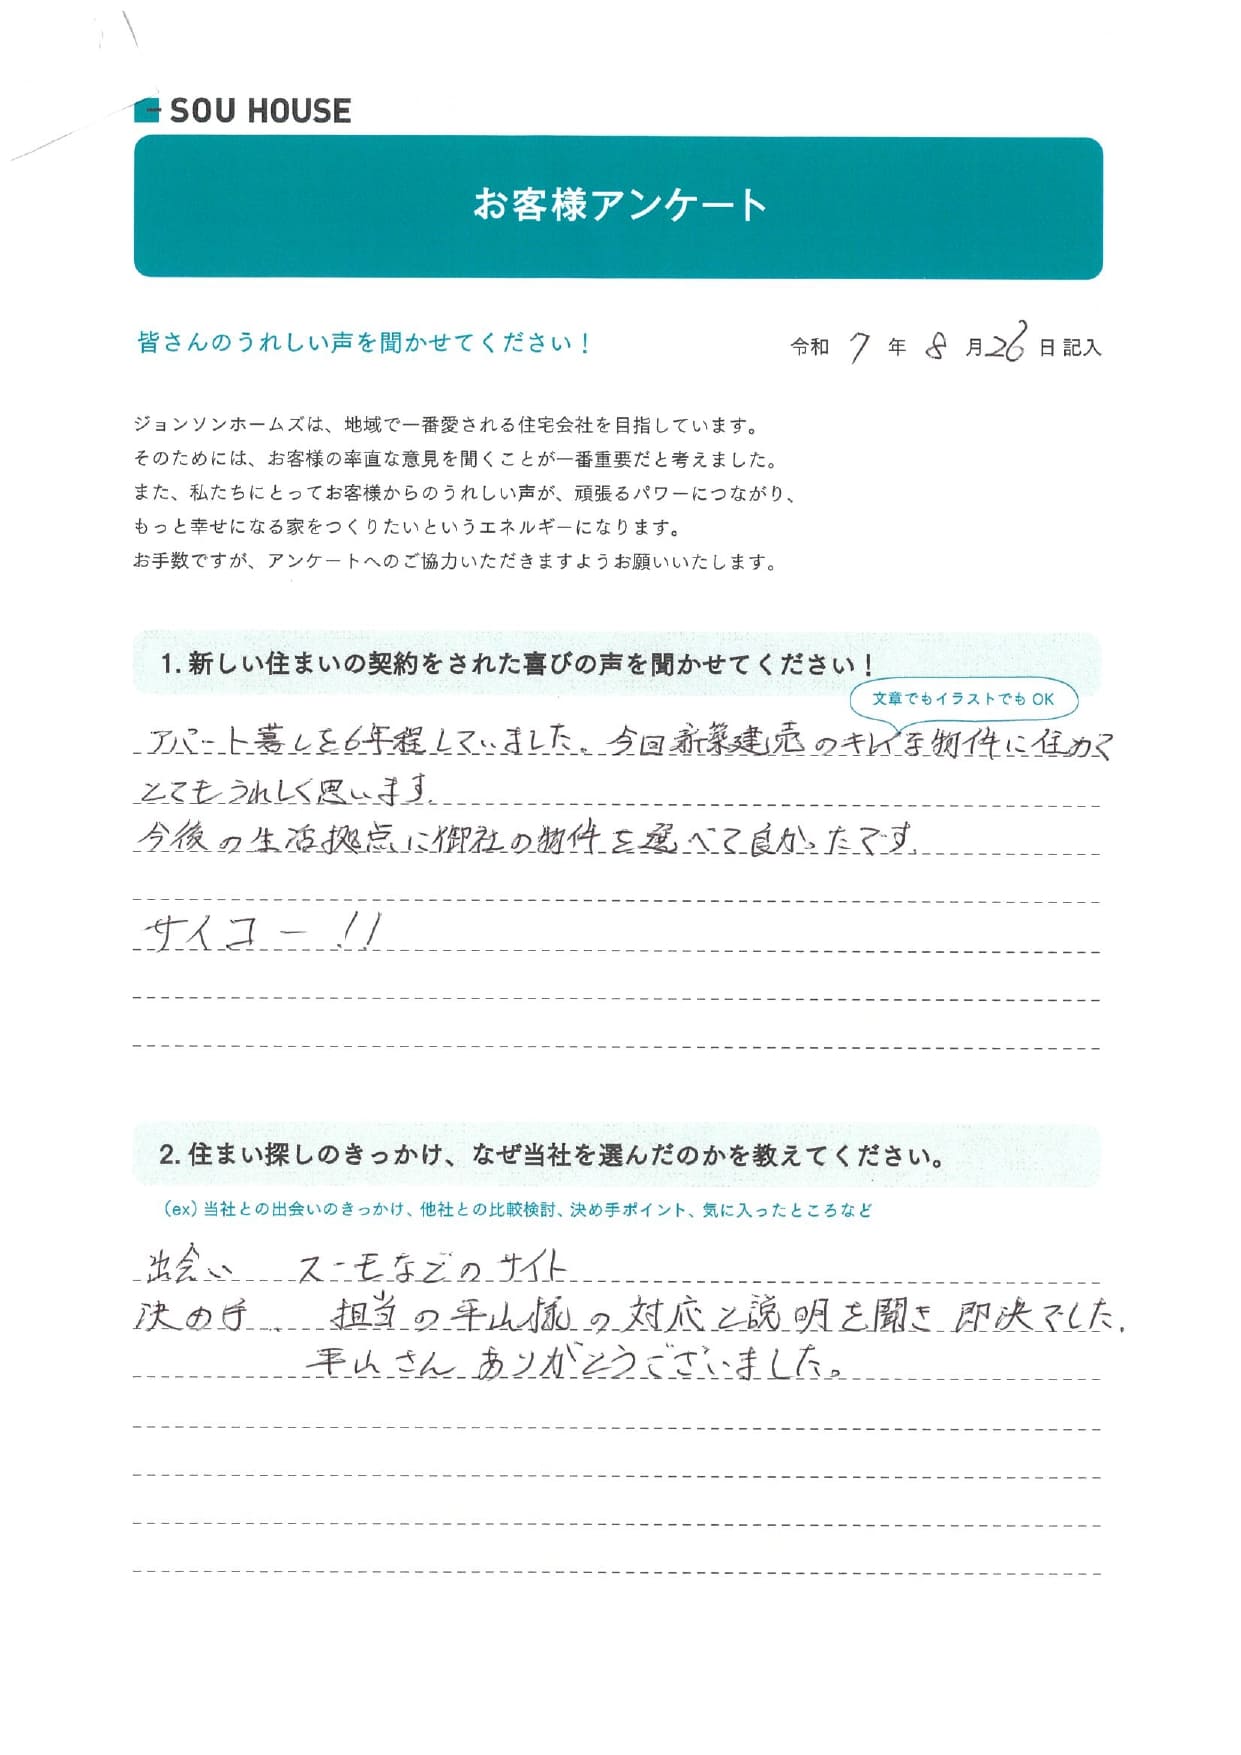 SOU HOUSE
お客様アンケート
皆さんのうれしい声を聞かせてください！
令和 7 年 8 月 26 日 記入
ジョンソンホームズは、地域で一番愛される住宅会社を目指しています。
そのためには、お客様の率直な意見を聞くことが一番重要だと考えました。
また、私たちにとってお客様からのうれしい声が、頑張るパワーにつながり、
もっと幸せになる家をつくりたいというエネルギーになります。
お手数ですが、アンケートへのご協力いただきますようお願いいたします。
1. 新しい住まいの契約をされた喜びの声を聞かせてください！
文章でもイラストでも OK
アパート暮しを6年程していました。今回新築建売のキレイな物件に住めて
とてもうれしく思います.
今後の生活拠点に御社の物件を選べて良かったです.
サイコー!!
2. 住まい探しのきっかけ、なぜ当社を選んだのかを教えてください。
（ex）当社との出会いのきっかけ、他社との比較検討、決め手ポイント、気に入ったところなど
出会い スーモなどのサイト
決め手、 担当の平山様の対応と説明を聞き 即決でした.
平山さん ありがとうございました。